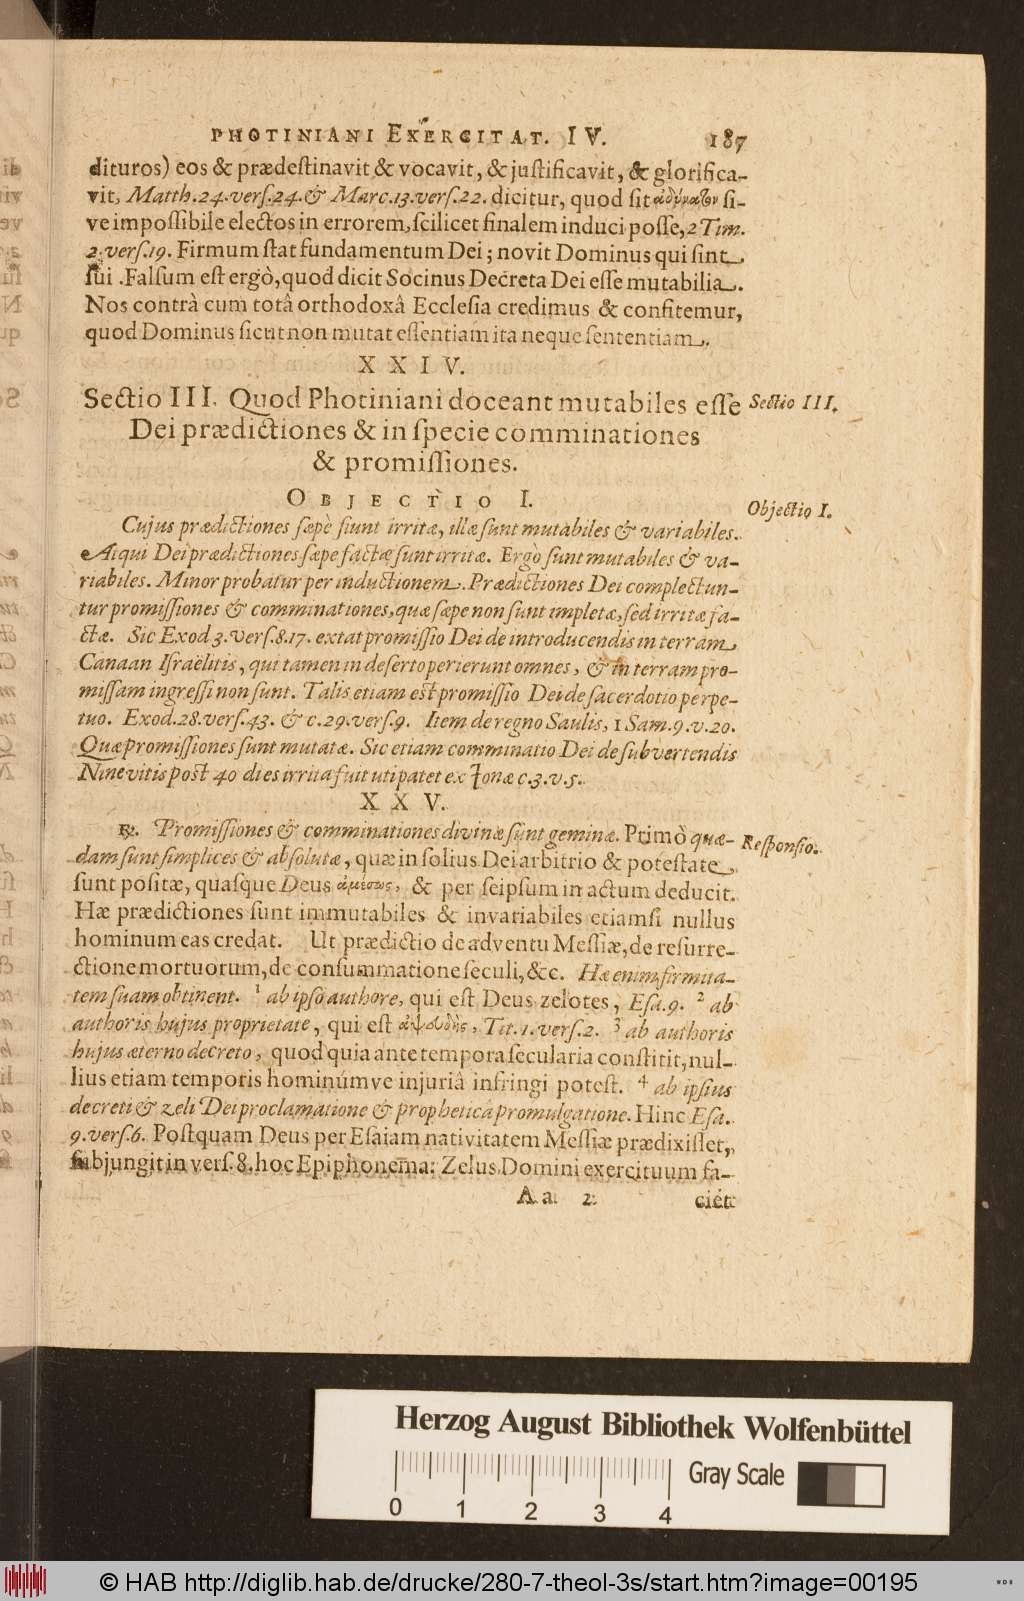 PHOTINIANI EXERCITAT. IV. 187
dituros) eos & prædestinavit & vocavit, & justificavit, & glorifica-
vit, Matth.24.vers.24. & Marc.13.vers.22. dicitur, quod sit ἀδύνατον si-
ve impossibile electos in errorem, scilicet finalem induci posse, 2 Tim.
2.vers.19. Firmum stat fundamentum Dei; novit Dominus qui sint
sui. Falsum est ergò, quod dicit Socinus Decreta Dei esse mutabilia.
Nos contrà cum totâ orthodoxâ Ecclesia credimus & confitemur,
quod Dominus sicut non mutat essentiam ita neque sententiam.
XXIV.
Sectio III. Quod Photiniani doceant mutabiles esse
Sectio III.
Dei prædictiones & in specie comminationes
& promissiones.
OBJECTIO I.
Objectio I.
Cujus prædictiones sæpè fiunt irritæ, illæ sunt mutabiles & variabiles.
Atqui Dei prædictiones sæpe factæ sunt irritæ. Ergò sunt mutabiles & va-
riabiles. Minor probatur per inductionem. Prædictiones Dei complectun-
tur promissiones & comminationes, quæ sæpe non sunt impletæ, sed irritæ fa-
ctæ. Sic Exod 3.Vers.8.17. extat promissio Dei de introducendis in terram
Canaan Israëlitis, qui tamen in deserto perierunt omnes, & in terram pro-
missam ingressi non sunt. Talis etiam est promissio Dei de sacerdotio perpe-
tuo. Exod.28.vers.43. & c.29.vers.9. Item de regno Saulis, 1 Sam.9.v.20.
Quæ promissiones sunt mutatæ. Sic etiam comminatio Dei de subvertendis
Ninevitis post 40 dies irrita fuit uti patet ex Jonæ c.3.v.5.
XXV.
℞. Promissiones & comminationes divinæ sunt geminæ. Primò quæ-
Responsio.
dam sunt simplices & absolutæ, quæ in solius Dei arbitrio & potestate
sunt positæ, quasque Deus ἀμέσως, & per seipsum in actum deducit.
Hæ prædictiones sunt immutabiles & invariabiles etiamsi nullus
hominum eas credat. Ut prædictio de adventu Messiæ, de resurre-
ctione mortuorum, de consummatione seculi, &c. Hæ enim firmita-
tem suam obtinent. 1 ab ipso authore, qui est Deus zelotes, Esa.9. 2 ab
authoris hujus proprietate, qui est ἀψευδὴς, Tit.1.vers.2. 3 ab authoris
hujus æterno decreto, quod quia ante tempora secularia constitit, nul-
lius etiam temporis hominúmve injuriâ infringi potest. 4 ab ipsius
decreti & zeli Dei proclamatione & prophetica promulgatione. Hinc Esa.
9.vers.6. Postquam Deus per Esaiam nativitatem Messiæ prædixisset,
subjungit in vers.8. hoc Epiphonema: Zelus Domini exercituum fa-
Aa 2 ciet
Herzog August Bibliothek Wolfenbüttel
Gray Scale
0 1 2 3 4
© HAB http://diglib.hab.de/drucke/280-7-theol-3s/start.htm?image=00195